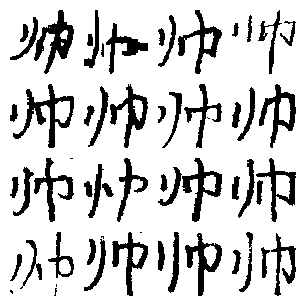 帅帅帅帅
帅帅帅帅
帅帅帅帅
帅帅帅帅